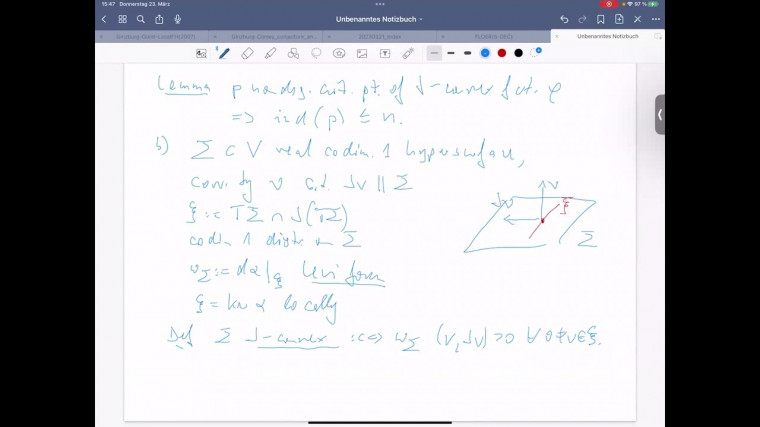 15:47 Donnerstag 23. März
Unbenanntes Notizbuch
97 %
20230321_Index
FLOER(S-DEC)
Unbenanntes Notizbuch
Lemma p nondeg. crit. pt. of J-convex fct. φ
=> ind(p) ≤ n.
b) Σ ⊂ V real codim. 1 hypersurface,
coor. by ν s.t. Jν ∥ Σ
ξ := TΣ ∩ J(TΣ)
codim 1 distr. on Σ
ω_Σ := dα|_ξ Levi form
ξ = ker α locally
Def Σ J-convex :<=> ω_Σ (v, Jv) > 0 ∀ 0 ≠ v ∈ ξ.
ν
Jν
ξ
Σ